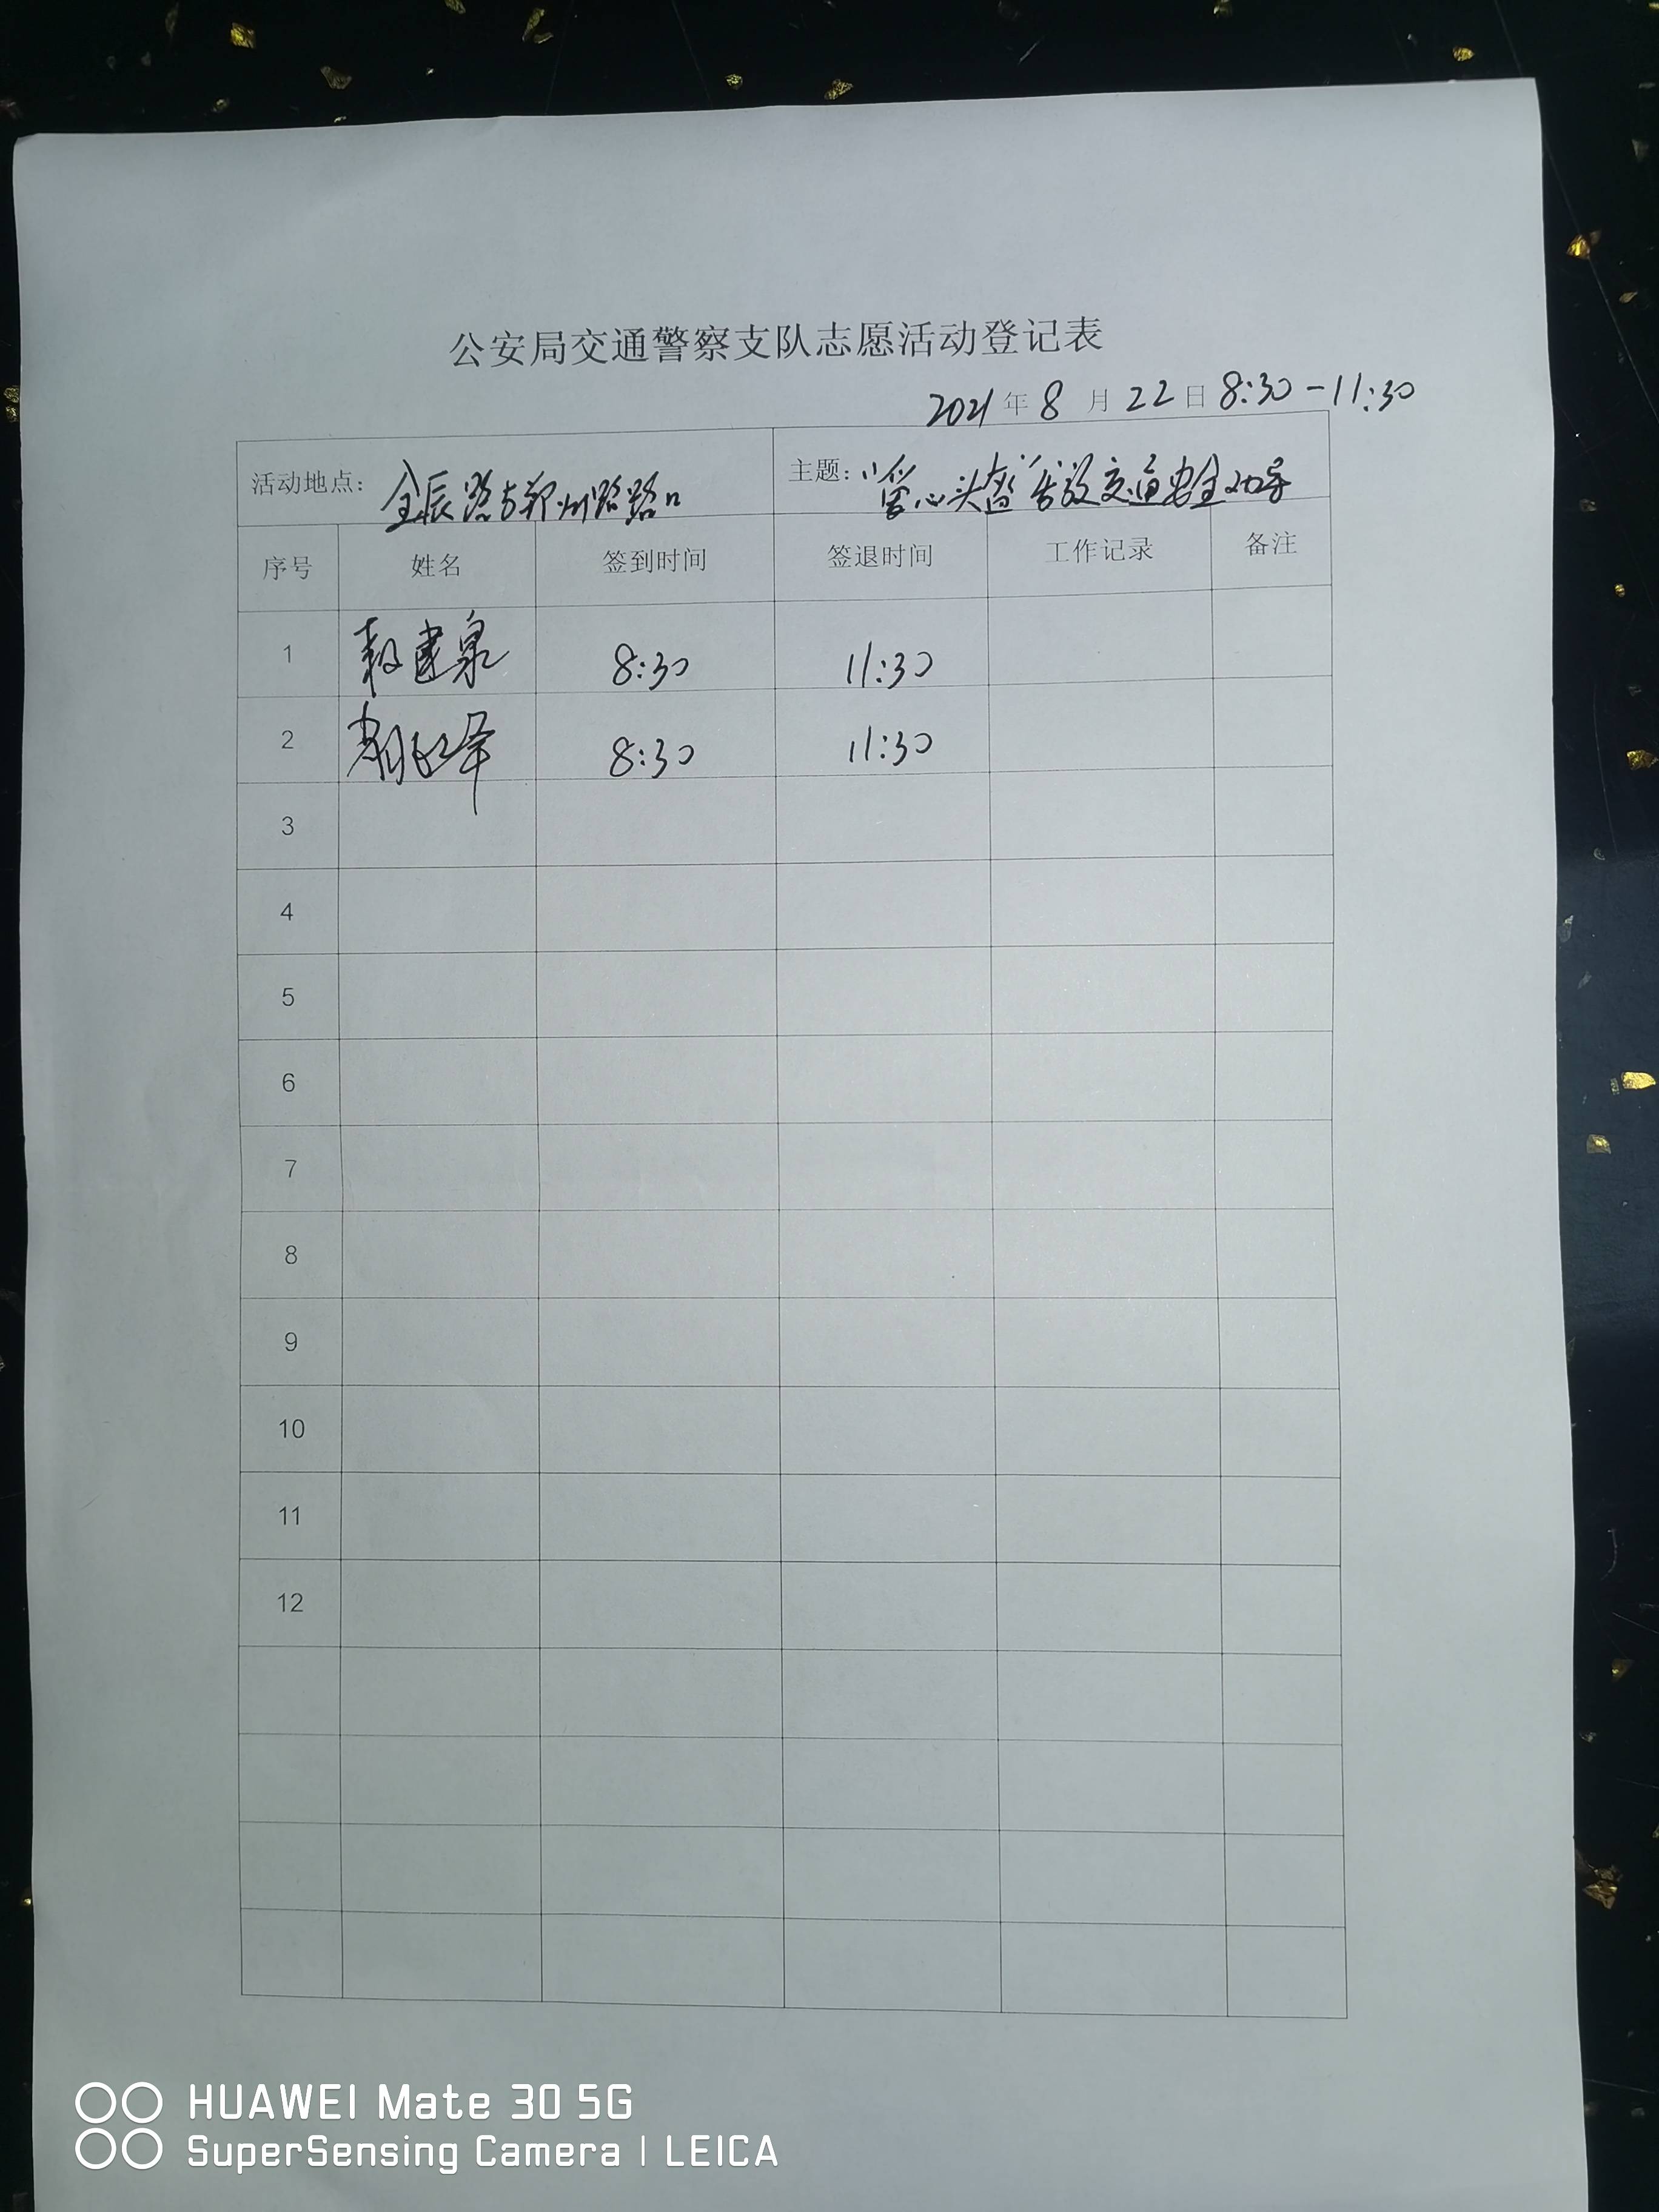 公安局交通警察支队志愿活动登记表
2021年8月22日8:30-11:30
活动地点: 金辰路与郑州路路口 主题: "爱心头盔"发放交通安全劝导
序号 姓名 签到时间 签退时间 工作记录 备注
1 建泉 8:30 11:30
2 8:30 11:30
3
4
5
6
7
8
9
10
11
12
HUAWEI Mate 30 5G
SuperSensing Camera | LEICA